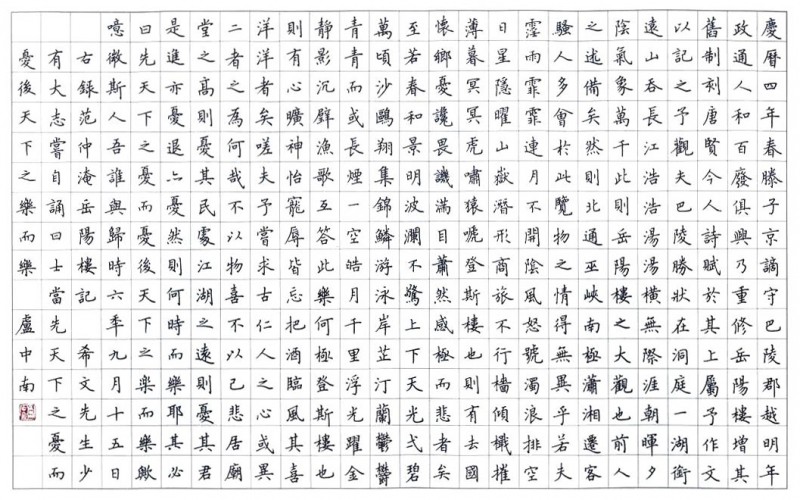 慶曆四年春滕子京謫守巴陵郡越明年
政通人和百廢俱興乃重修岳陽樓增其
舊制刻唐賢今人詩賦於其上屬予作文
以記之予觀夫巴陵勝狀在洞庭一湖銜
遠山吞長江浩浩湯湯橫無際涯朝暉夕
陰氣象萬千此則岳陽樓之大觀也前人
之述備矣然則北通巫峽南極瀟湘遷客
騷人多會於此覽物之情得無異乎若夫
霪雨霏霏連月不開陰風怒號濁浪排空
日星隱曜山嶽潛形商旅不行檣傾檝摧
薄暮冥冥虎嘯猿號登斯樓也則有去國
懷鄉憂讒畏譏滿目蕭然感極而悲者矣
至若春和景明波瀾不驚上下天光弌碧
萬頃沙鷗翔集錦鱗游泳岸芷汀蘭鬱鬱
青青而或長煙一空皓月千里浮光躍金
靜影沉璧漁歌互答此樂何極登斯樓也
則有心曠神怡寵辱皆忘把酒臨風其喜
洋洋者矣嗟夫予嘗求古仁人之心或異
二者之為何哉不以物喜不以己悲居廟
堂之高則憂其民處江湖之遠則憂其君
是進亦憂退亦憂然則何時而樂耶其必
曰先天下之憂而憂後天下之楽而樂歟
噫微斯人吾誰與歸時六年九月十五日
右錄范仲淹岳陽樓記 希文先生少
有大志嘗自誦曰士當先天下之憂而
憂後天下之樂而樂 盧中南